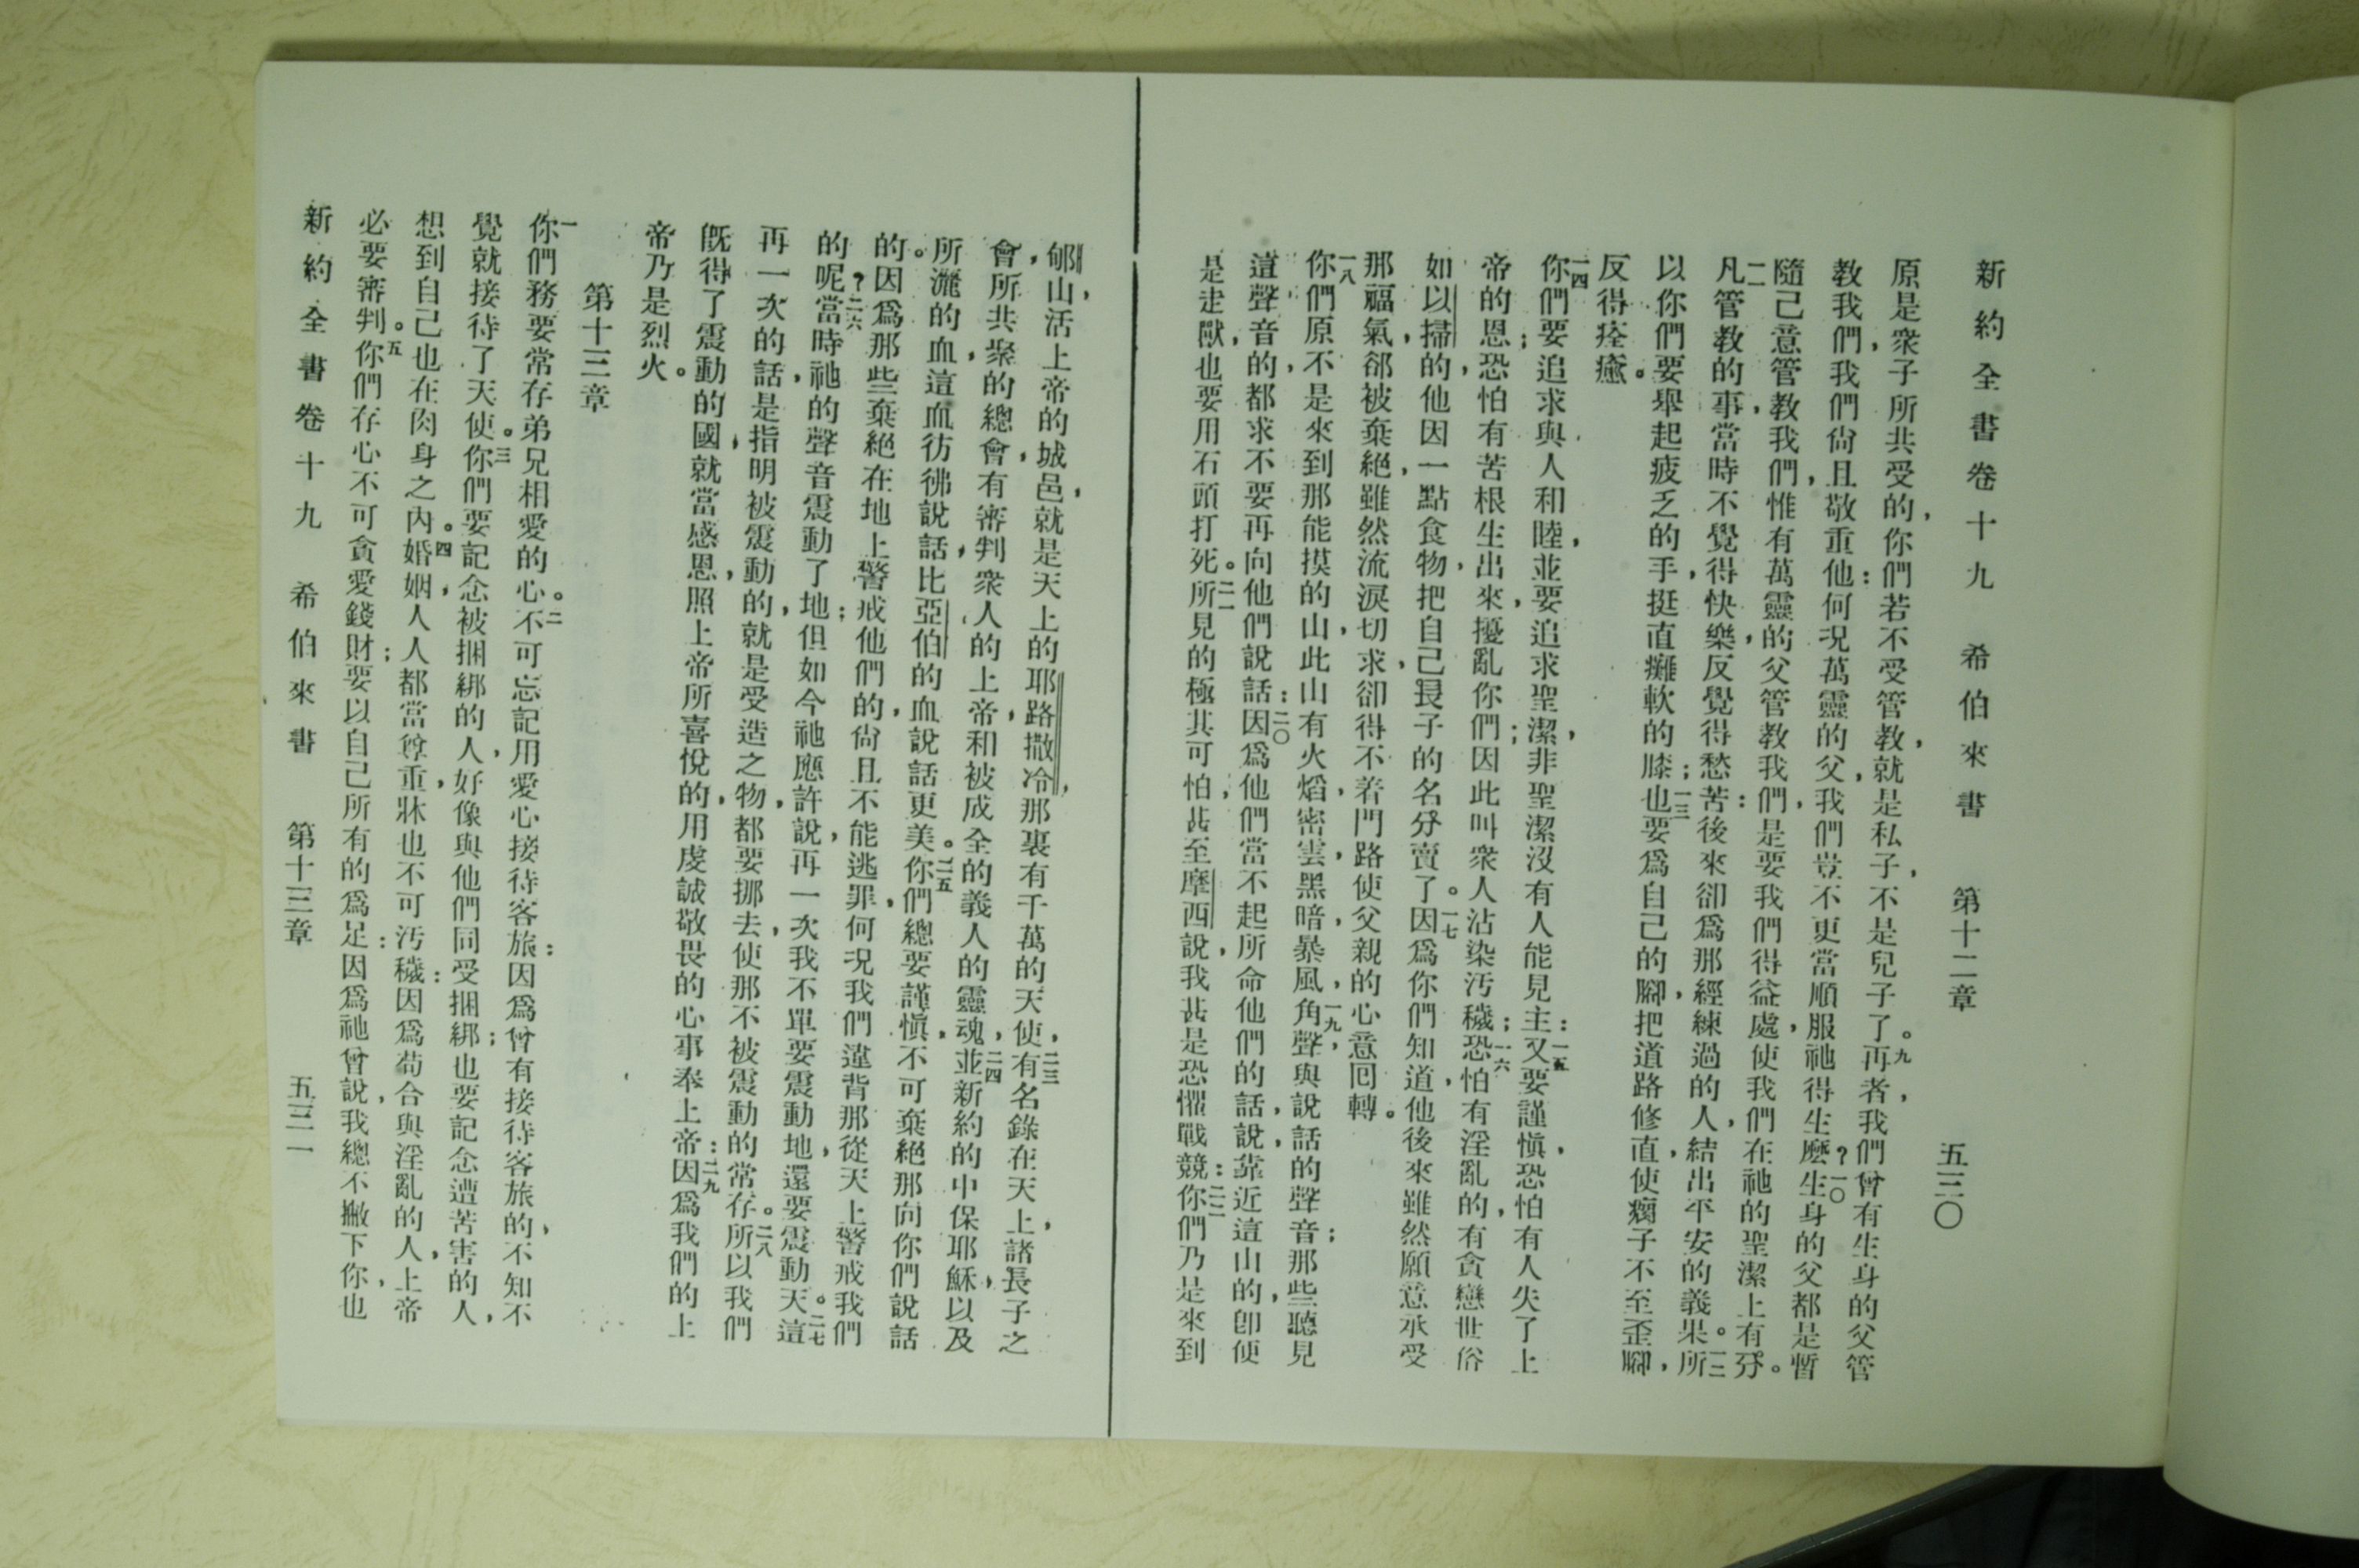 新約全書卷十九 希伯來書 第十二章 五三〇
原是衆子所共受的,你們若不受管教,就是私子,不是兒子了。九再者,我們曾有生身的父管
教我們,我們尙且敬重他:何況萬靈的父,我們豈不更當順服祂得生麼?一〇生身的父都是暫
隨己意管教我們,惟有萬靈的父管教我們,是要我們得益處,使我們在祂的聖潔上有分。
一一凡管教的事,當時不覺得快樂,反覺得愁苦:後來卻爲那經練過的人,結出平安的義果。一二所
以你們要舉起疲乏的手,挺直癱軟的膝;一三也要爲自己的腳,把道路修直,使瘸子不至歪腳,
反得痊癒。
一四你們要追求與人和睦,並要追求聖潔;非聖潔沒有人能見主:一五又要謹愼,恐怕有人失了上
帝的恩;恐怕有苦根生出來,擾亂你們,因此叫衆人沾染汚穢;一六恐怕有淫亂的,有貪戀世俗
如以掃的,他因一點食物,把自己長子的名分賣了。一七因爲你們知道,他後來雖然願意承受
那福氣,郤被棄絕,雖然流淚切求,卻得不着門路,使父親的心意囘轉。
一八你們原不是來到那能摸的山,此山有火熖,密雲,黑暗,暴風,一九角聲,與說話的聲音;那些聽見
這聲音的,都求不要再向他們說話:二〇因爲他們當不起所命他們的話,說,靠近這山的,卽便
是走獸,也要用石頭打死。二一所見的極其可怕,甚至摩西說,我甚是恐懼戰競:二二你們乃是來到
郇山,活上帝的城邑,就是天上的耶路撒冷,那裏有千萬的天使,二三有名錄在天上諸長子之
會,所共聚的總會,有審判衆人的上帝,和被成全的義人的靈魂,二四並新約的中保耶穌,以及
所灑的血,這血彷彿說話,比亞伯的血說話更美。二五你們總要謹愼,不可棄絕那向你們說話
的。因爲那些棄絕在地上警戒他們的,尙且不能逃罪,何況我們違背那從天上警戒我們
的呢?二六當時祂的聲音震動了地;但如今祂應許說,再一次我不單要震動地,還要震動天。二七這
再一次的話,是指明被震動的,就是受造之物,都要挪去,使那不被震動的常存。二八所以我們
旣得了震動的國,就當感恩,照上帝所喜悅的,用虔誠敬畏的心事奉上帝:二九因爲我們的上
帝乃是烈火。
第十三章
一你們務要常存弟兄相愛的心。二不可忘記用愛心接待客旅:因爲曾有接待客旅的,不知不
覺就接待了天使。三你們要記念被捆綁的人,好像與他們同受捆綁;也要記念遭苦害的人,
想到自己也在肉身之內。四婚姻,人人都當尊重,牀也不可汚穢:因爲苟合與淫亂的人,上帝
必要審判。五你們存心不可貪愛錢財;要以自己所有的爲足:因爲祂曾說,我總不撇下你,也
新約全書卷十九 希伯來書 第十三章 五三一